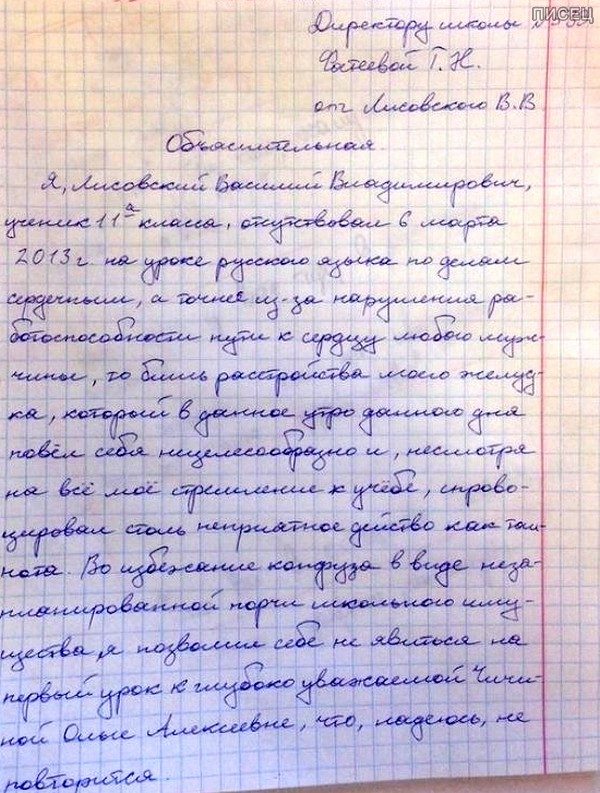 ПИСЕЦ
Директору школы №
Фатеевой Г.Н.
от Лисовского В.В
Объяснительная.
Я, Лисовский Василий Владимирович,
ученик 11а класса, отсутствовал 6 марта
2013г. на уроке русского языка по делам
сердечным, а точнее из-за нарушения ра-
ботоспособности пути к сердцу любого муж-
чины, то бишь расстройства моего желуд-
ка, который в данное утро данного дня
повёл себя нецелесообразно и, несмотря
на всё моё стремление к учёбе, спрово-
цировал столь неприятное действо как тош-
нота. Во избежание конфуза в виде неза-
планированной порчи школьного иму-
щества, я позволил себе не явиться на
первый урок к глубоко уважаемой Чичи-
ной Ольге Алексеевне, что, надеюсь, не
повторится.